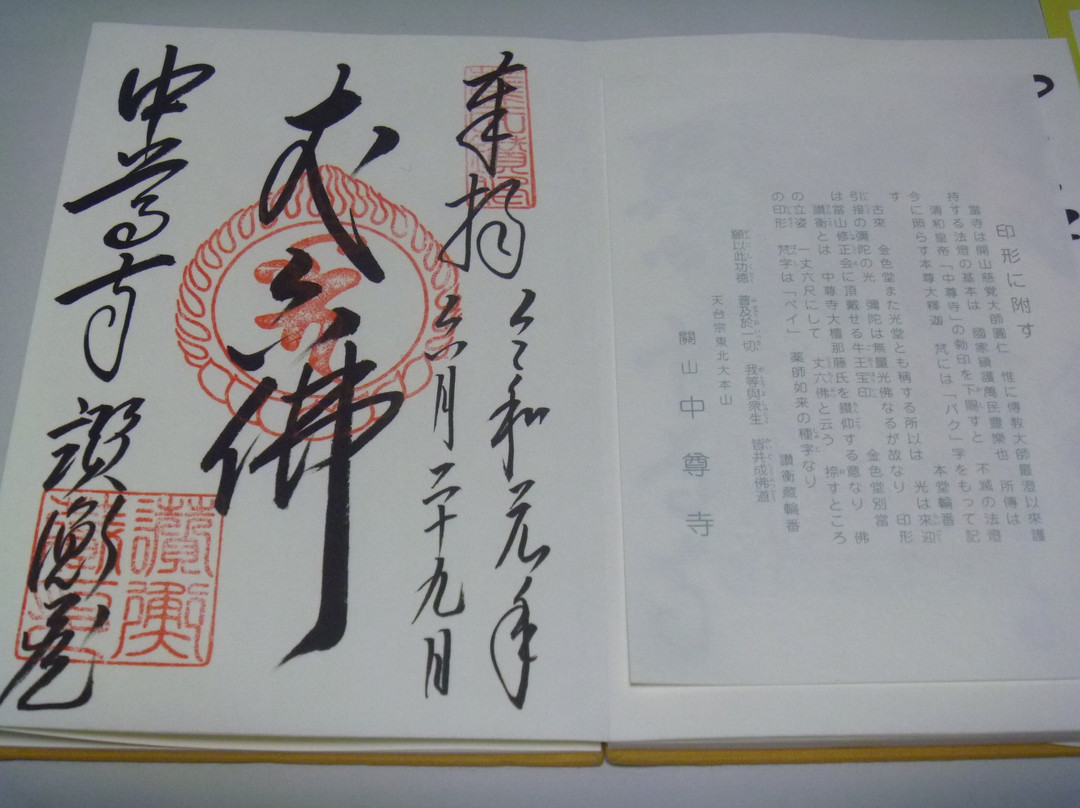 印形に附す
當寺は開山慈覚大師圓仁 惟に傳教大師最澄以來護
持する法燈の基本は 國家鎮護萬民豊樂也 所傳は
清和皇帝「中尊寺」の勅印を下賜すと 不滅の法燈
今に照らす本尊大釋迦 梵には「バク」字をもって記
す 本堂輪番
古來 金色堂また光堂とも稱する所以は 光は來迎
引接の彌陀の光 彌陀は無量光佛なるが故なり 印形
は當山修正会に頂戴せる牛王宝印 金色堂別當
讃衡とは 中尊寺大檀那藤氏を讃仰する意なり 佛
の立姿 一丈六尺にして 丈六佛と云ろ 捺すところ
の印形 梵字は「ベイ」 薬師如来の種字なり
讃衡蔵輪番
願以此功徳 普及於一切 我等與衆生 皆共成佛道
天台宗東北大本山
關山 中尊寺
奉拝 令和元年
六月二十九日
丈六佛
中尊寺 讃衡蔵